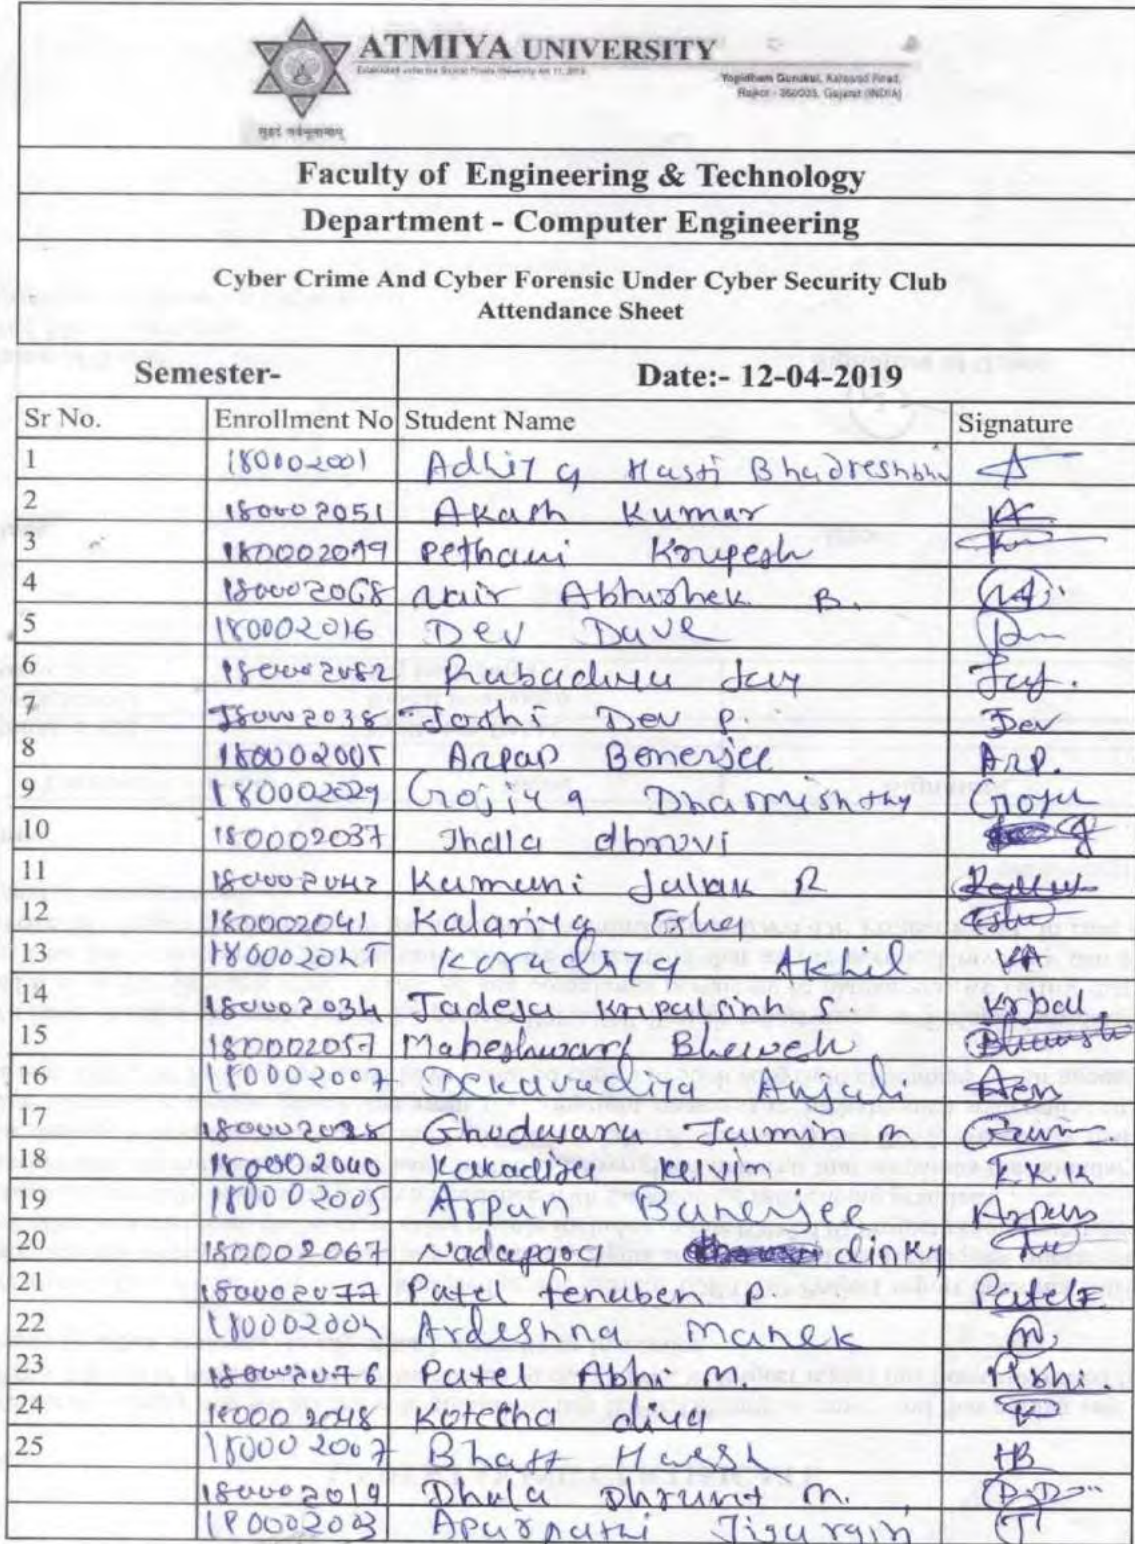 ATMIYA UNIVERSITY
Established under the Gujarat Private University Act 11, 2018
Yogidham Gurukul, Kalawad Road,
Rajkot - 360005, Gujarat (INDIA)
सुहृदं सर्वभूतानाम्
Faculty of Engineering & Technology
Department - Computer Engineering
Cyber Crime And Cyber Forensic Under Cyber Security Club
Attendance Sheet
Semester- Date:- 12-04-2019
Sr No. Enrollment No Student Name Signature
1 180002001 Adhiya Hasti Bhadreshbhai
2 180002051 Akash Kumar
3 180002079 Pethani Krupesh
4 180002068 Nair Abhishek B.
5 180002016 Dev Dave
6 180002082 Rabadiya Jay Jay.
7 180002038 Joshi Dev P. Dev
8 180002005 Arpan Benerjee Arp.
9 180002029 Gojiya Dharmishthy
10 180002037 Jhalla dhruvi
11 180002042 Kamani Jalak R
12 180002041 Kalariya Isha
13 180002045 Koradiya Akhil
14 180002034 Jadeja Kripalsinh S. Kripal.
15 180002057 Maheshwari Bhavesh
16 180002007 Sekhavadiya Anjali
17 Ghodasara Jaimin M
18 180002040 Kakadiya Kelvin
19 180002005 Arpan Banerjee Arpan
20 180002067 Nadapara dinky
21 180002077 Patel fenuben P. Patel F
22 180002004 Ardeshna Manek
23 180002076 Patel Abhi M. Abhi.
24 180002048 Kotecha diva
25 180002007 Bhatt Harsh HB
180002019 Dhola Dhruvit M.
180002003 Aparnathi Jigargiri